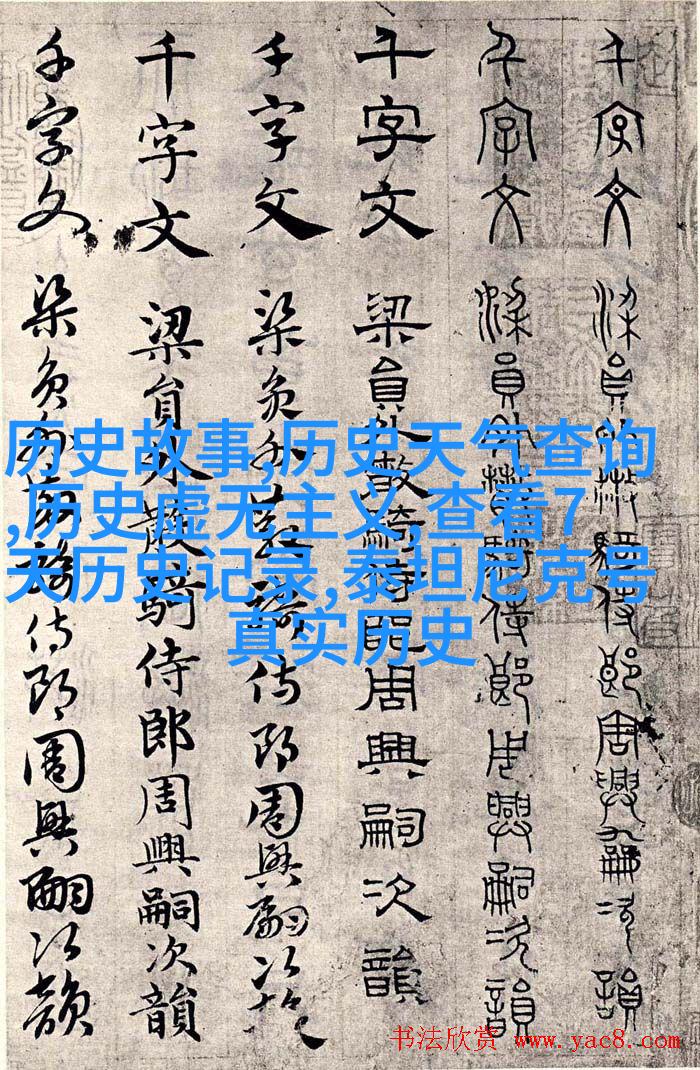 千字文 梁員外散騎侍郎周興嗣次韻
千字文 梁員外散騎侍郎周興嗣次韻
千字文 梁員外散騎侍郎周興嗣次韻
千字文 梁員外散騎侍郎周興嗣次韻
千字文 梁員外散騎侍郎周興嗣次韻
千字文 梁員外散騎侍郎周興嗣次韻
历史故事,历史天气查询
,历史虚无主义,查看7
天历史记录,泰坦尼克号
真实历史
书法欣赏 www.yac8.com